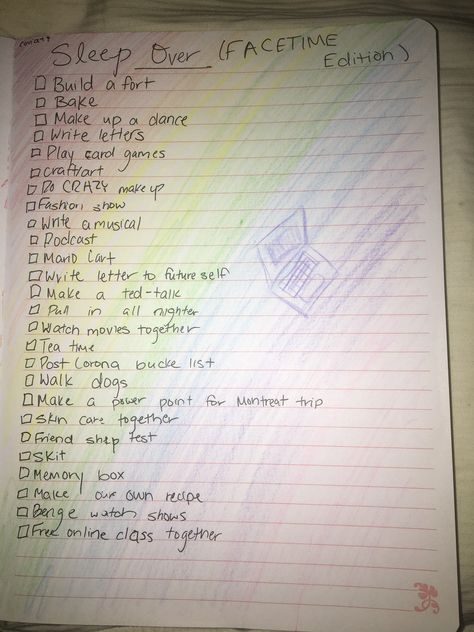 Sleep Over (FACETIME
Edition)
Build a fort
Bake
Make up a dance
Write letters
Play card games
craft/art
Do CRAZY makeup
Fashion show
Write a musical
Podcast
Mario Cart
Write letter to future self
Make a ted-talk
Pull in all nighter
Watch movies together
Tea time
Post Corona bucke list
Walk dogs
Make a power point for Montreat trip
Skin care together
Friend ship test
Skit
Memory box
Make our own recipe
Benge watch shows
Free online class together